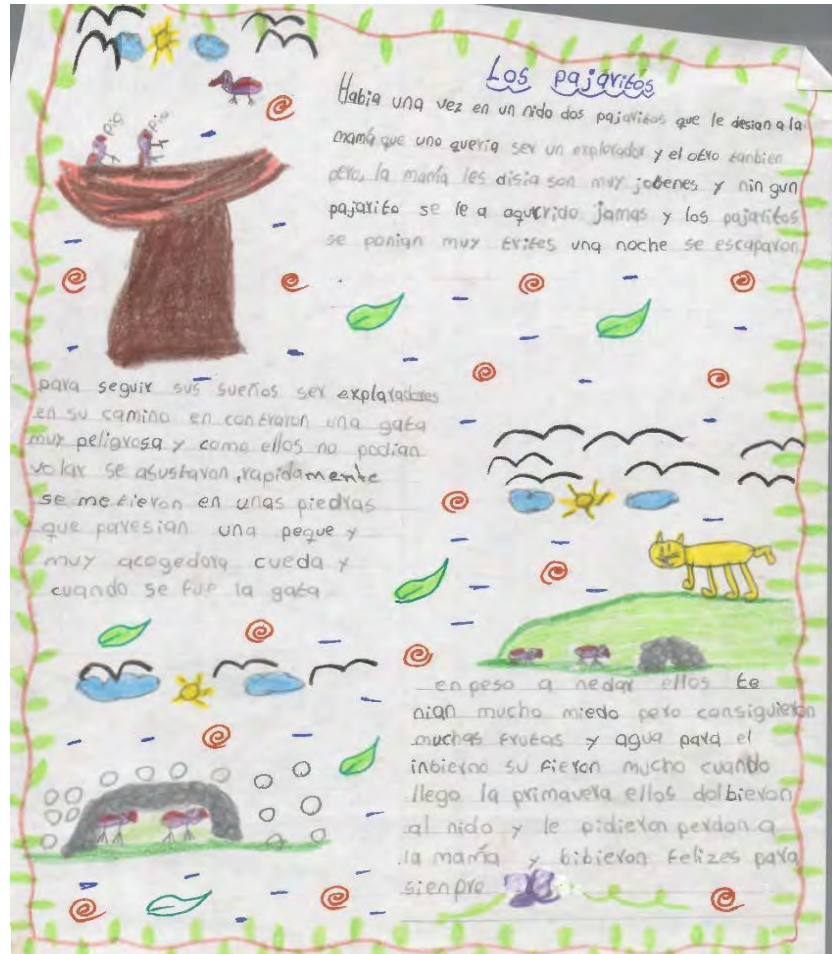 Los pajaritos
pio
pio
Habia una vez en un nido dos pajaritos que le desian a la
mamá que uno queria ser un explorador y el otro tanbien
pero, la mamá les disia son muy jobenes y nin gun
pajarito se le a aqurrido jamas y los pajaritos
se ponian muy trites una noche se escaparon
para seguir sus sueños ser exploradores
en su camino en contraron una gata
muy peligrosa y como ellos no podian
vo lar se asustaron, rapidamente
se metieron en unas piedras
que paresian una peque y
muy acogedora cueda y
cuando se fue la gata
enpeso a nedar ellos te
nian mucho miedo pero consiguieron
muchas frutas y agua para el
inbierno su fieron mucho cuando
llego la primavera ellos dolbieron
al nido y le pidieron perdon a
la mamá y bibieron felizes para
sienpre